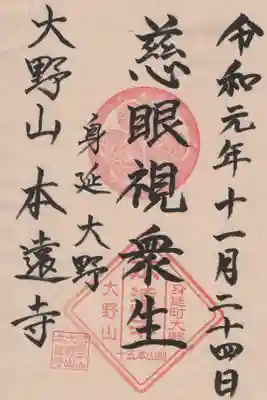 令和元年十一月二十四日
慈眼視衆生
身延 大野
大野山 本遠寺
身延町大野
大野山